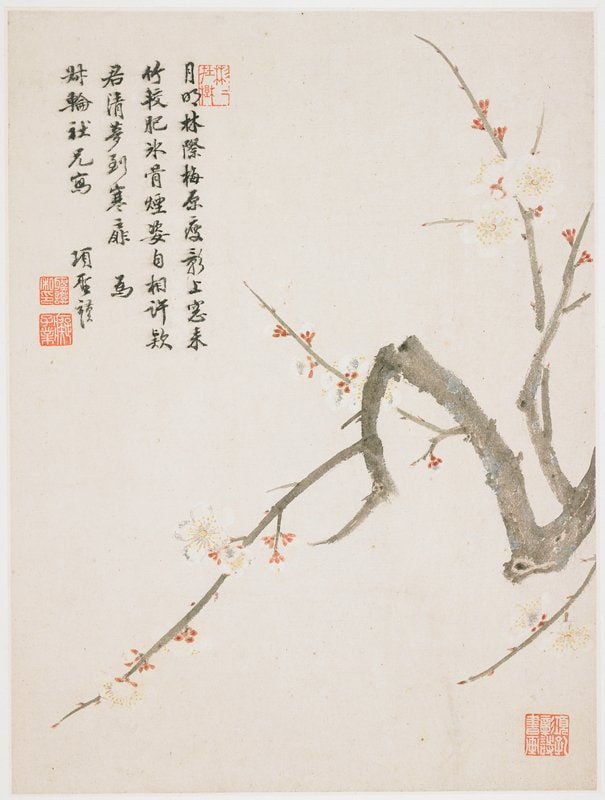 月明林際梅原瘦影上窓來
竹較肥氷骨煙姿自相許欵
君清夢到寒扉 為
尌輪社兄寫
項聖謨